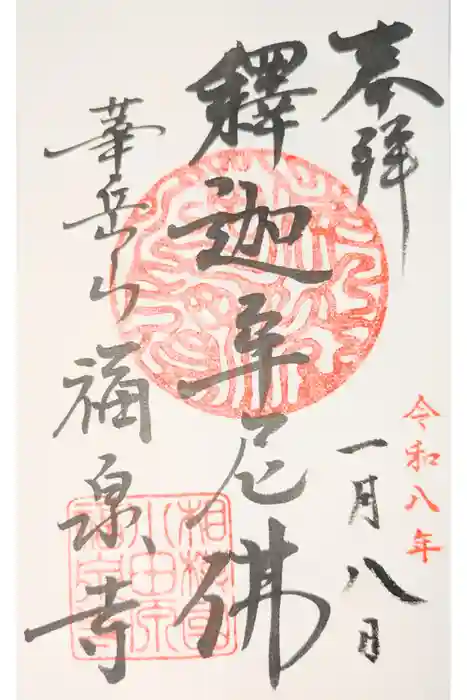 奉拝
令和八年
一月八日
釋迦牟尼佛
華岳山
福泉寺
相模國
小田原
福泉寺